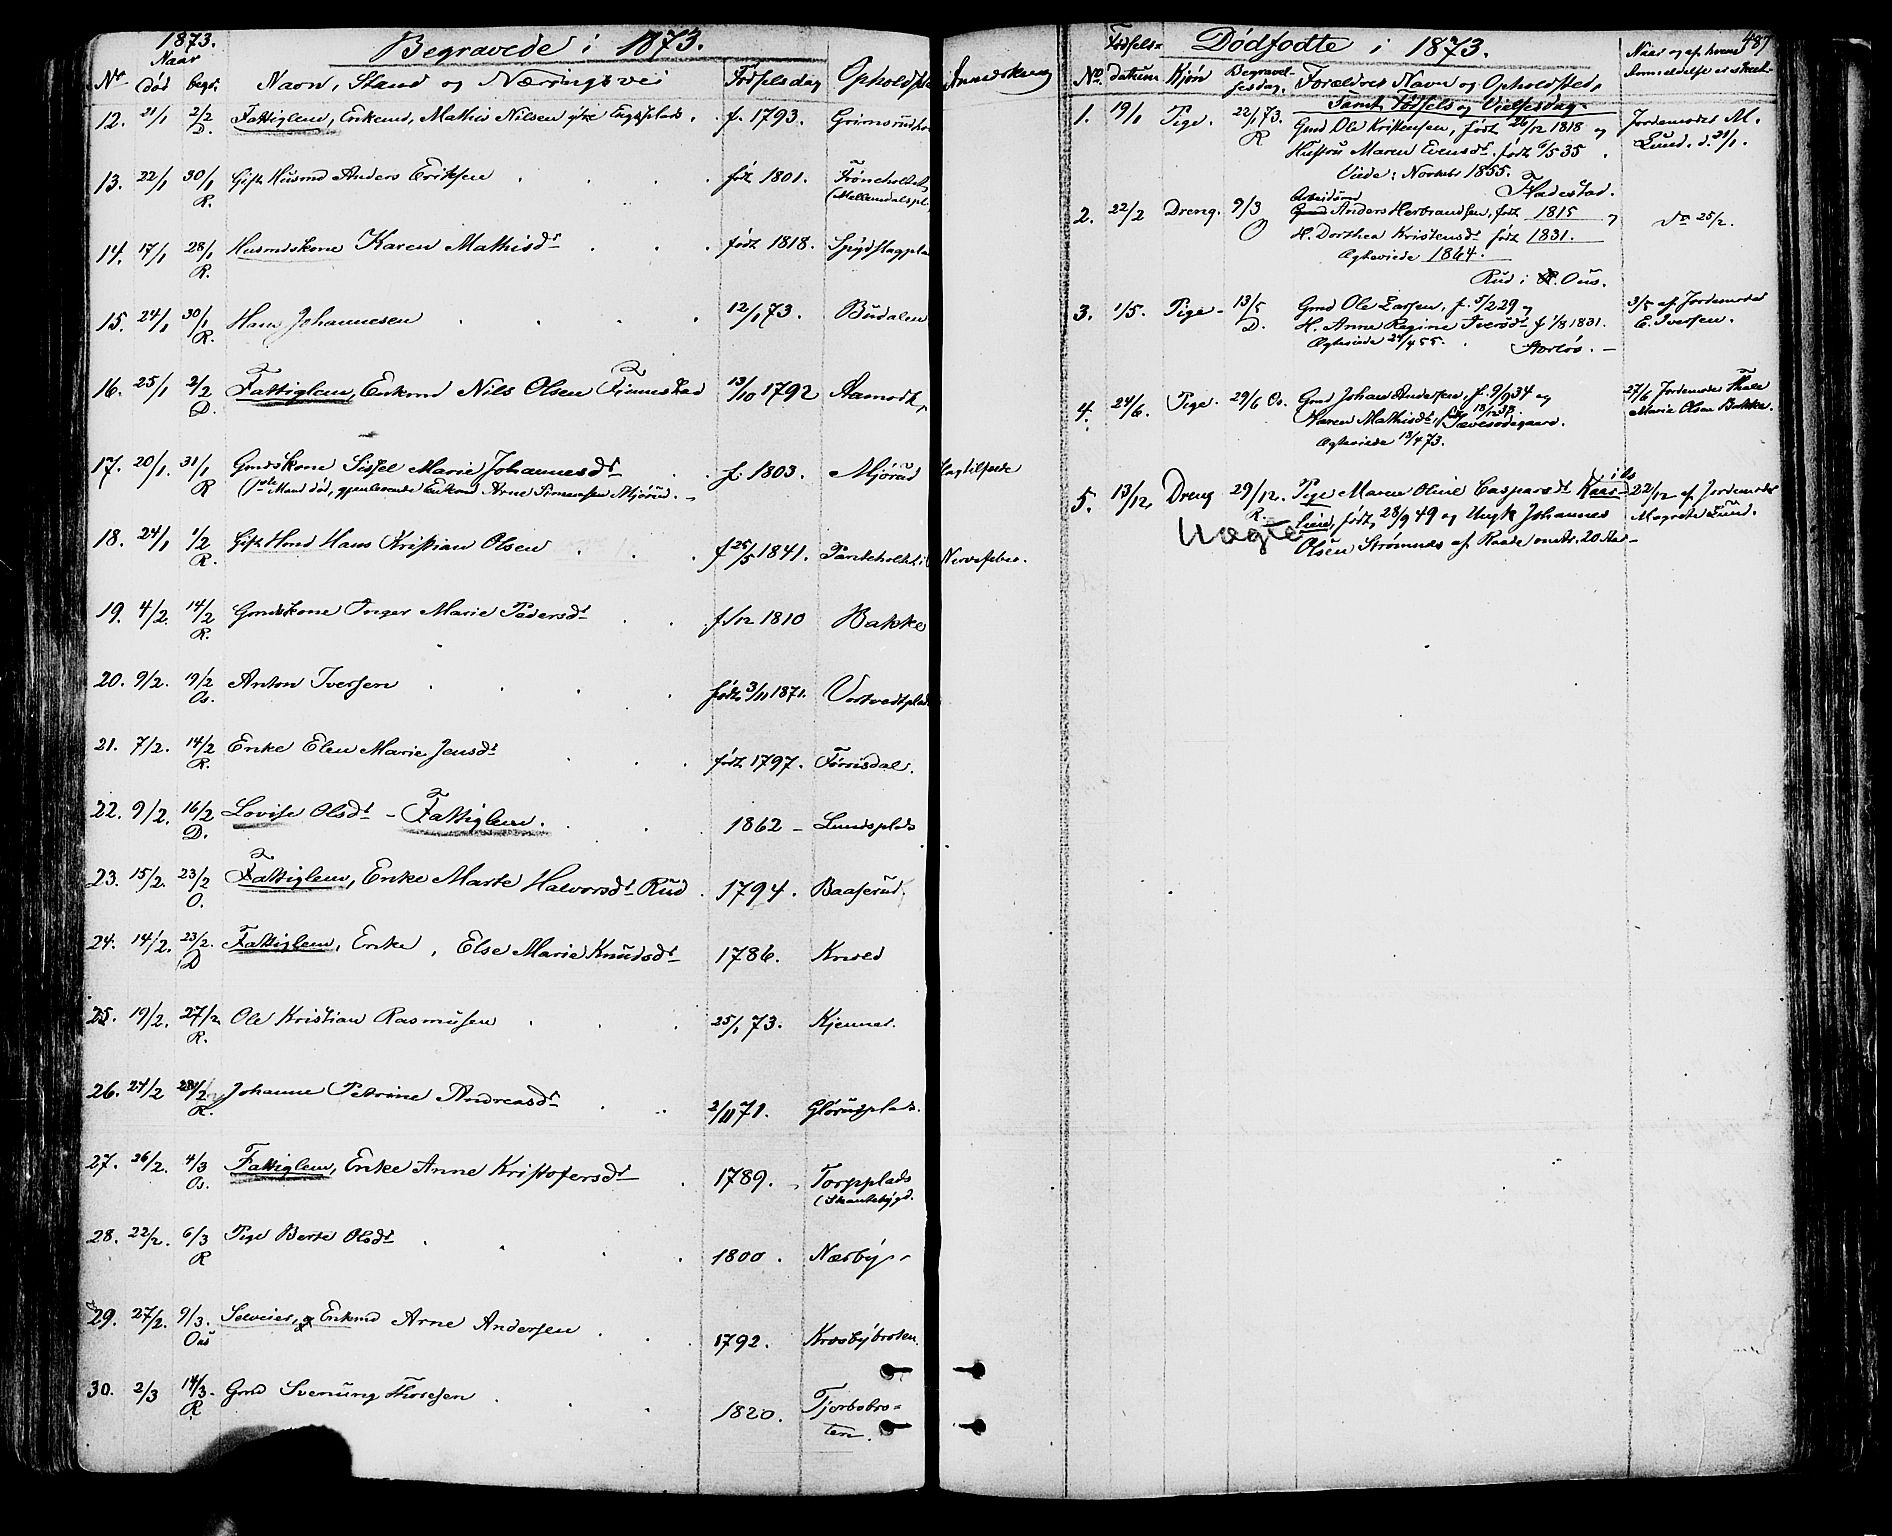 1873.
Begravede i 1873.
Naar
No død begr. Navn, Stand og Næringsvei Fødselsdag Opholdsted Anmerkning
12. 21/1 2/2 D. Fattiglem, Enkemd, Mathis Nilsen f. 1793.
13. 22/1 30/1 R. Gift Husmd Anders Eriksen født 1801. Frøneholtet
(Mellemdalspl.
14. 17/1 28/1 R. Husmdskone Karen Mathisdr født 1818.
15. 24/1 30/1 R. Hans Johannesen 12/1 73. Budalen
16. 25/1 2/2 D. Fattiglem, Enkemd Nils Olsen Finnestad 13/10 1792 Aamodt,
17. 20/1. 31/1 R Gmdskone Sissel Marie Johannesdr f. 1803. Mjørud
Mand død, gjenlevende Enkemd Arne Simensen Mjørud. -
18. 24/1 1/2 R. Gift Hmd Hans Kristian Olsen f 25/5 1841.
19. 4/2. 14/2 R. Gmdskone Inger Marie Pedersdr f 1/12 1810 Bakke
20. 9/2. 19/2 Os. Anton Iversen født 3/11 1871. Vortvedtplads
21. 7/2. 14/2 R. Enke Elen Marie Jensdr født 1797. Førrisdal.
22. 9/2. 16/2 D. Lovise Olsdr - Fattiglem. 1862 - Lundsplads
23. 15/2. 23/2 O. Fattiglem, Enke Marte Halvorsdr Rud 1794. Baaserud.
24. 14/2. 23/2. D Fattiglem, Enke, Else Marie Knudsdr 1786. Krived
25. 19/2. 27/2 R. Ole Kristian Rasmusen 25/1 73. Kjennet.
26. 24/2 28/2 R. Johanne Petrine Andreasdr 2/11 71. Glørugplads.
27. 26/2. 4/3 Os. Fattiglem, Enke Anne Kristofersdr 1789. Torpplads
(Skautebygd.
28. 22/2. 6/3 R Pige Berte Olsdr 1800. Næsby -
29. 27/2. 9/3. Ous Selveier, & Enkemd Arne Andersen 1792. Krosbybroten.
30. 2/3 14/3. R Gmd Svenung Thoresen 1820. Tjorbobro=
ten.
487
Dødfødte i 1873.
No. Fødsels= datum Kjøn Begravel- sesdag, Forældres Navn og Opholdsted,
Samt Fødsels og Vielsesdag.
Naar og af hvem
Anmeldelse er skeet.
1. 19/1 Pige. 22/1 73. R Gmd Ole Kristensen, født 26/12 1818 og
Hustru Maren Evensdr. født 6/5 35.
Viede: Novbr 1855.
Fladestad.
Jordemoder M.
Lund. d. 21/1.
2. 22/2 Dreng. 9/3 O Arbeidsmd
Anders Herbrandsen, født 1815 og
H. Dorthea Kristensdr født 1831.
Ægteviede 1864.
Rud i Ous.
Do 25/2.
3. 1/5. Pige - 13/5 D. Gmd Ole Larsen, f. 5/2 29 og
H. Anne Regine Iversdr f 1/8 1831.
Ægteviede 24/4 55.
3/5 af Jordemoder
E. Iversen.
4. 24/6. Pige. 29/6 Os. Gmd Johan Andersen, f. 9/9 34 og
Karen Mathisdr,
Ægteviede 13/4 73.
27/6 Jordemoder Thale
Marie Olsen Bakke.
5. 13/12, Dreng 29/12. R. Pige Maren Oline Caspersdr
født 28/9 49 og Ungk Johannes
Olsen Strømnes af Raade omtr. 20 Aar -
Uægte
22/12 af Jordemoder
Magrete Lund.